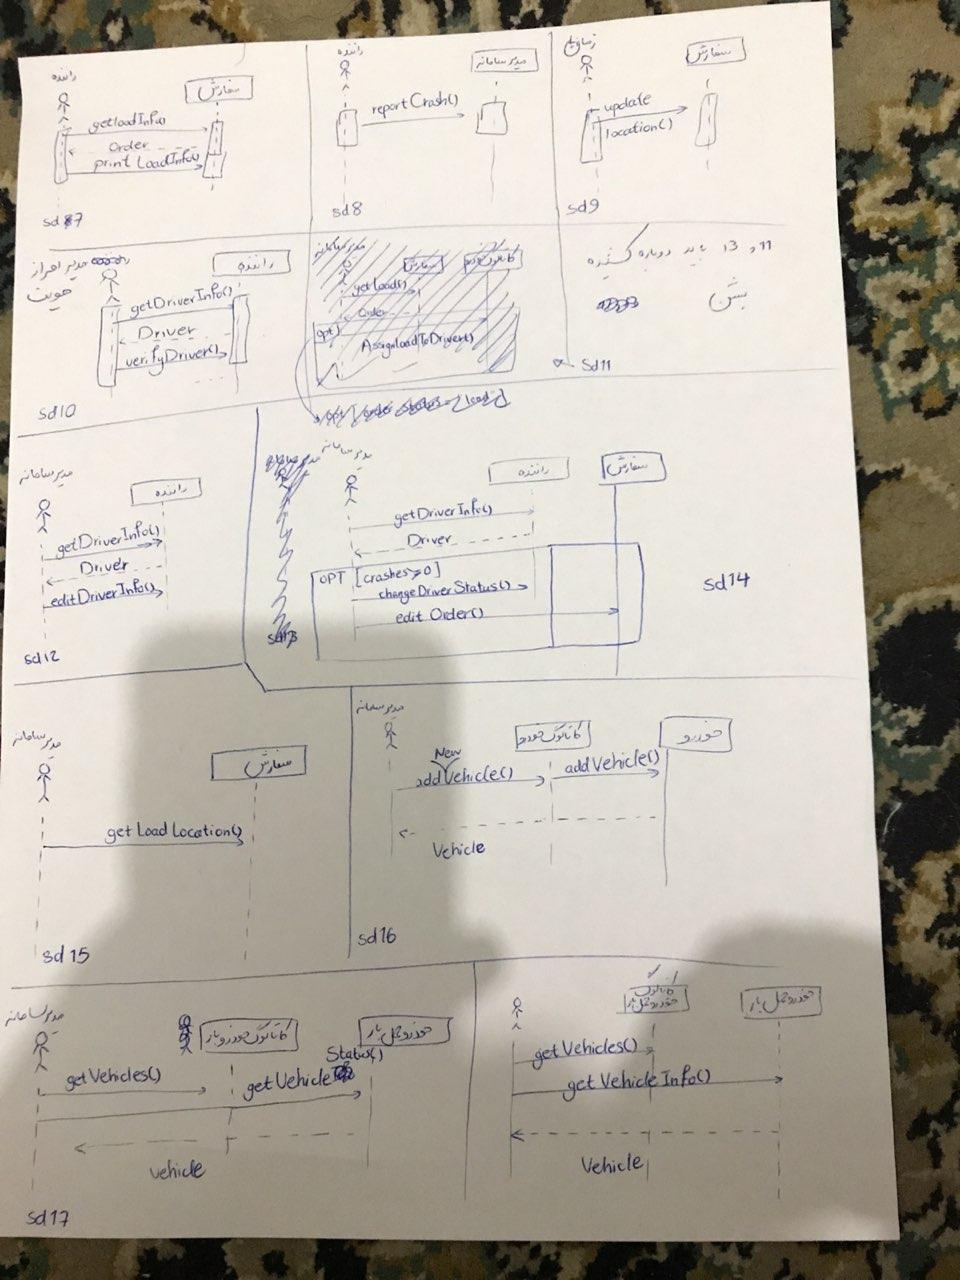 راننده
سفارش
getloadInfo()
Order
print LoadInfo()
sd 7
راننده
مدیر سامانه
report Crash()
sd8
سفارش
update
location()
sd9
مدیر احراز
هویت
راننده
getDriverInfo()
Driver
verifyDriver()
sd10
مدیر سامانه
سفارش
get Load()
Order
opt
AssignloadToDriver()
11 و 13 باید دوباره کشیده
بشن
sd11
مدیر سامانه
راننده
getDriverInfo()
Driver
editDriverInfo()
sd12
مدیر سامانه
راننده
سفارش
getDriverInfo()
Driver
OPT [crashes>0]
changeDriverStatus()
edit Order()
sd14
sd13
مدیر سامانه
سفارش
get Load Location()
sd 15
مدیر سامانه
کاتالوگ خودرو
خودرو
New
add Vehicle()
add Vehicle()
Vehicle
sd16
مدیر سامانه
کاتالوگ خودرو بار
خودرو حمل بار
getVehicles()
getVehicle Status()
vehicle
sd17
کاتالوگ
خودرو حمل بار
خودرو حمل بار
getVehicles()
get Vehicle Info()
Vehicle